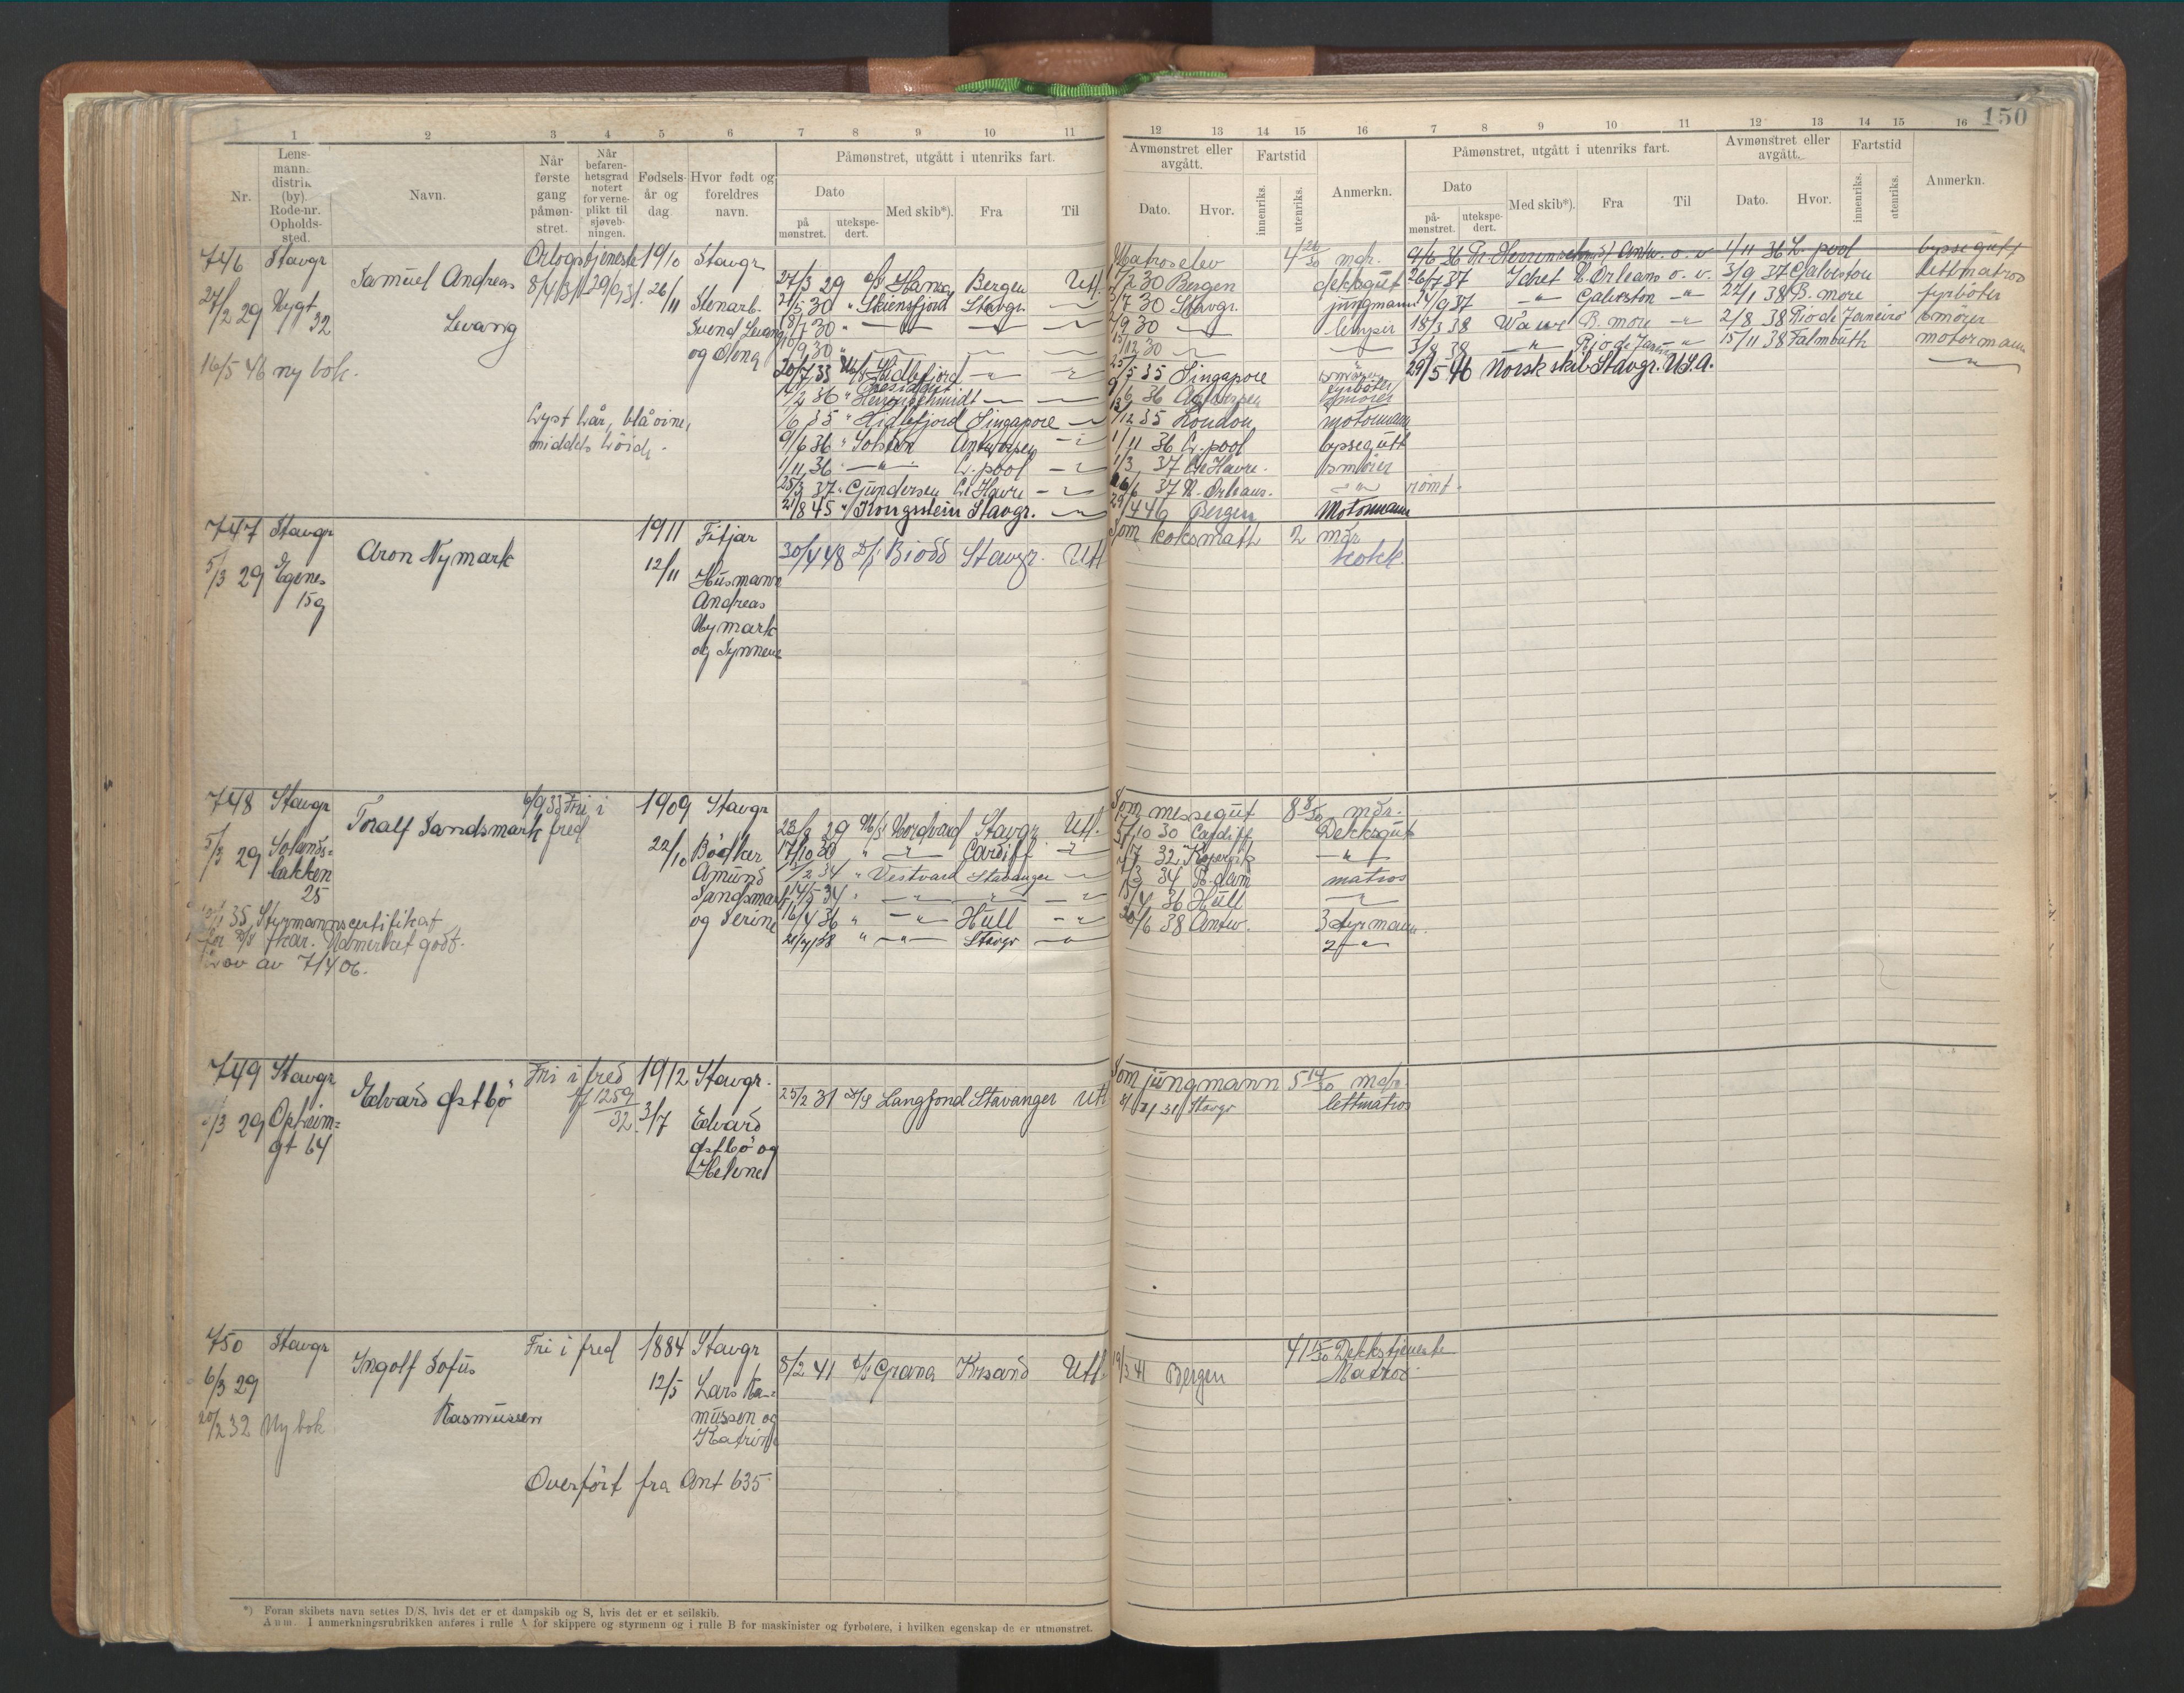 150
1 2 3 4 5 6 7 8 9 10 11
12 13 14 15 16 7 8 9 10 11 12 13 14 15 16
Nr.
Lens-
mann.
distrik
(by).
Rode-nr.
Opholds-
sted.
Navn.
Når
første
gang
påmøn-
stret.
Når
befaren-
hetsgrad
notert
for verne-
plikt til
sjøveb-
ningen.
Fødsels-
år og
dag.
Hvor født og
foreldres
navn.
Påmønstret, utgått i utenriks fart.
Dato
på
mønstret.
utekspe-
dert.
Med skib*).
Fra
Til
Avmønstret eller
avgått.
Dato.
Hvor.
Fartstid
innenriks.
utenriks.
Anmerkn.
Påmønstret, utgått i utenriks fart.
Dato
på-
mønstret.
utekspe-
dert.
Med skib*).
Fra
Til
Avmønstret eller
avgått.
Dato.
Hvor.
Fartstid
innenriks.
utenriks.
Anmerkn.
746 Stavgr
27/2 29 Nygt
32
16/5 46 ny bok.
Samuel Andreas
Levang
Orlogstjeneste
8/4/31-29/9/31
Lyst hår, blå öine,
middels höide.
1910
26/11
Stavgr
Stenarb.
Svend Levang
og Olena
27/3 29 Hansa Bergen Utl.
21/5 30 " Skiensfjord Stavgr.
18/7 30 "
/9 30 "
20/7 33 M/S Hidlefjord
/2 36 " Herrenschmidt
1/6 35 " Hidlefjord Singapore
9/6 36 " Solsten Antwerpen
1/11 36 L. pool
25/3 37 " Gundersen Le Havre
21/8 45 " Kongsstein Stavgr.
Matroselev 4 mdr.
/2 30 Bergen dekksgut
/7 30 Stavgr. jungmann
/9 30 lemper
/12 30
25/5 35 Singapore smörer
fyrböter
9/6 36 Antwerpen smörer
/12 35 London motormann
1/11 36 L. pool byssegutt
1/3 37 Le Havre. smörer
16/6 37 N. Orleans. " römt.
29/4 46 Bergen Motormann
9/6 36 Pr. Herrenschmidt Antw. o. v 1/11 36 L. pool byssegutt
26/7 37 Idret N. Orleans o. v. 3/9 37 Galveston lettmatros
24/9 37 " Galveston " 22/1 38 B. more fyrböter
18/3 38 B. more " 2/8 38 Rio de Janeiro smörer
3/8 38 " Rio de Janeiro " 15/11 38 Falmouth motormann
29/5 46 Norsk skib Stavgr. U.S.A.
747 Stavgr
5/3 29 Egenes
15g
Aron Nymark
1911
12/11
Fitjar
Husmann
Andreas
Nymark
og Synneve
30/4 48 D/S Biodd Stavgr. Utl
Som koksmath 2 mdr
kokk.
748 Stavgr
5/3 29 Solands-
bakken
25
35 Styrmannscertifikat
for D/S fkar. Utmerket godt.
Lov av 7/4 06.
Toralf Sandsmark
6/9 33 Fri i
fred
1909
22/10
Stavgr
Bödker
Amund
Sandsmark
og Serine
23/3 29 M/S Nordvard Stavgr Utl.
17/10 30 " " Cardiff
/2 34 " Vestvard Stavanger
14/5 34 "
16/4 36 " " Hull
21/7/38 " " Stavgr
Som messegut 8 8/30 mdr.
17/10 30 Cardiff Dekksgut
/7 32 Kopervik "
/3 34 R. dam matros
/4 36 Hull
30/6 38 Antw. 3 styrmann.
2 "
749 Stavgr
/3 29 Opheim-
gt 64
Edvard Østbö
Fri i fred
1259/32
1912
3/7
Stavgr.
Edvard
Østbö og
Helene
25/2 31 D/S Langfond Stavanger Utl
Som jungmann 5 14/30 mdr.
31 Stavgr lettmatros
750 Stavgr
6/3 29
20/2 32 Ny bok
Ingolf Sofus
Rasmussen
Fri i fred
1884
12/5
Stavgr
Lars Ras-
mussen og
Katrine
Overfört fra Ant 635
8/2 41 Grana Krsand Utl.
19/3 41 Bergen
41 15/30 Dekkstjeneste
Matros.
*) Foran skibets navn settes D/S, hvis det er et dampskib og S, hvis det er et seilskib.
Anm. I anmerkningsrubrikken anføres i rulle A for skippere og styrmenn og i rulle B for maskinister og fyrbøtere, i hvilken egenskap de er utmønstret.